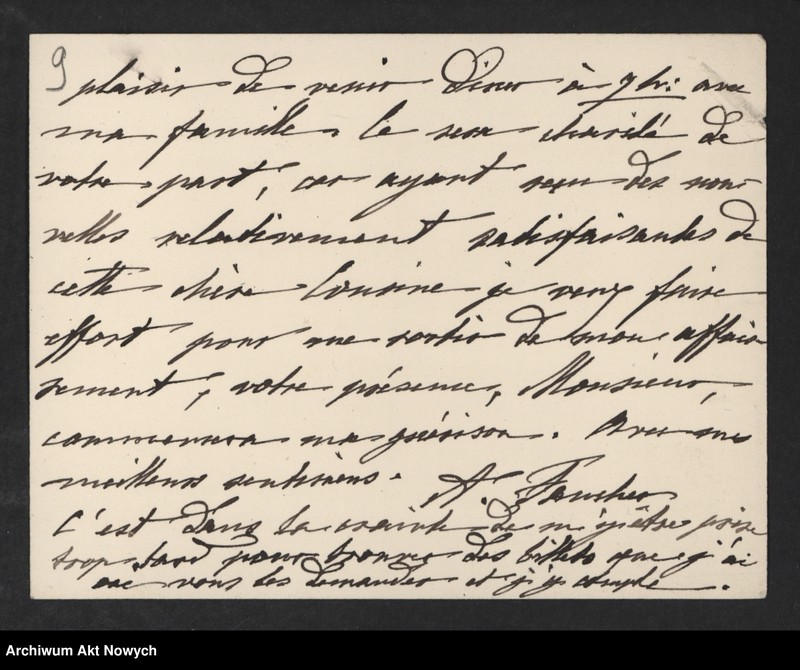 9
plaisir de venir diner à 7 h: avec
ma famille. Ce sera charité de
votre part, car ayant reçu des nou-
velles relativement satisfaisantes de
cette chère Cousine je veux faire
effort pour me sortir de mon affais-
sement, votre présence, Monsieur,
commencera ma guérison. Avec mes
meilleurs sentiments. A. Faucher
C'est dans la crainte de m'y être prise
trop tard pour trouver des billets que j'ai
osé vous les demander et j'y compte.
Archiwum Akt Nowych